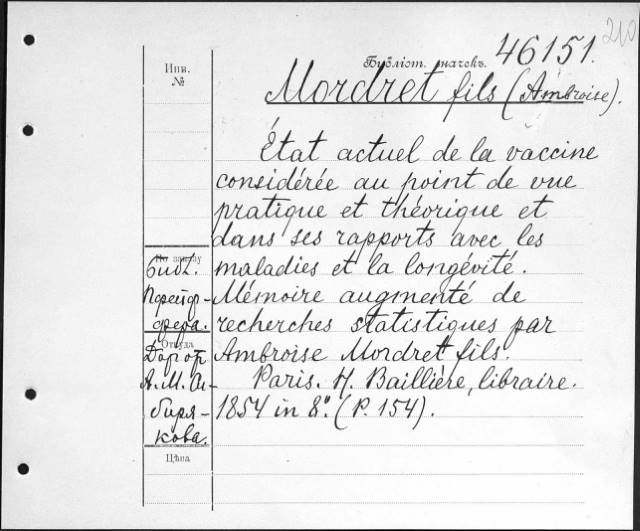 210
46151.
Библіот. значекъ.
Инв.
№
Mordret fils (Ambroise).
État actuel de la vaccine
considérée au point de vue
pratique et théorique et
dans ses rapports avec les
По заказу
Библ. maladies et la longévité.
Прейф- Mémoire augmenté de
фера. recherches statistiques par
Откуда
Дар от Ambroise Mordret fils.
А. М. Си- Paris. H. Baillière, libraire.
биря- 1854 in 8°. (P. 154).
кова.
Цѣна